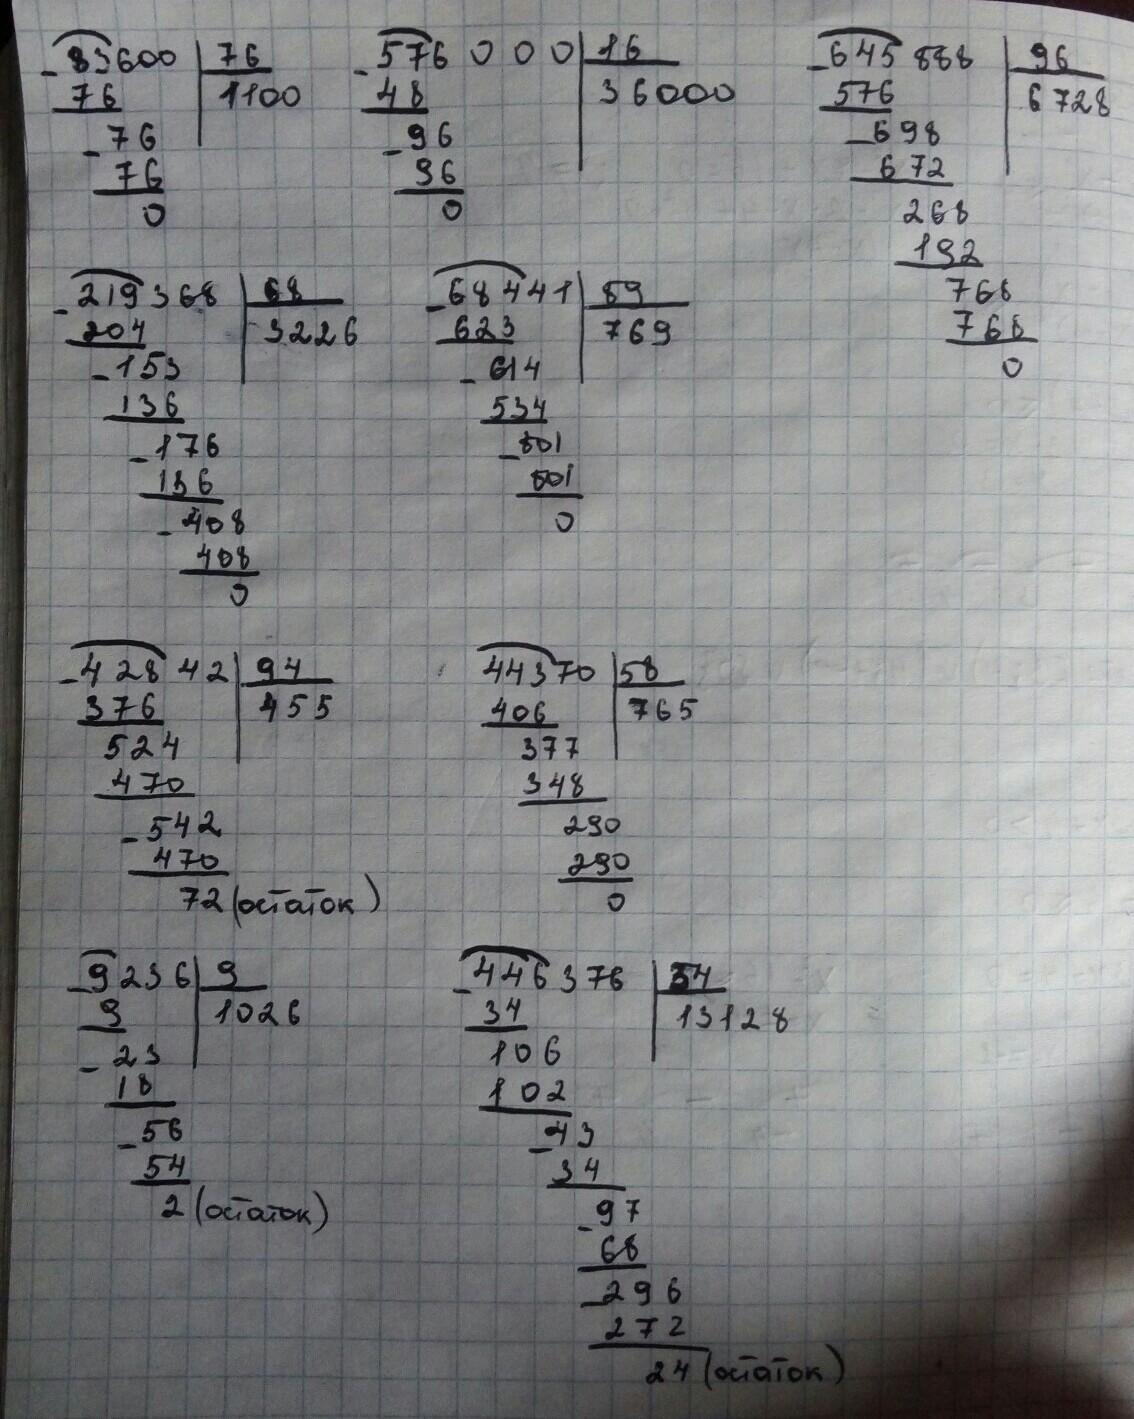 83600 76
76 1100
76
76
0
576 000 16
48 36000
96
96
0
645 888 96
576 6728
698
672
268
192
768
768
0
219368 68
204 3226
153
136
176
136
408
408
0
68441 89
623 769
614
534
801
801
0
428 42 94
376 455
524
470
542
470
72 (остаток)
44370 58
406 765
377
348
290
290
0
9236 9
9 1026
23
18
56
54
2 (остаток)
446376 34
34 13128
106
102
43
34
97
68
296
272
24 (остаток)